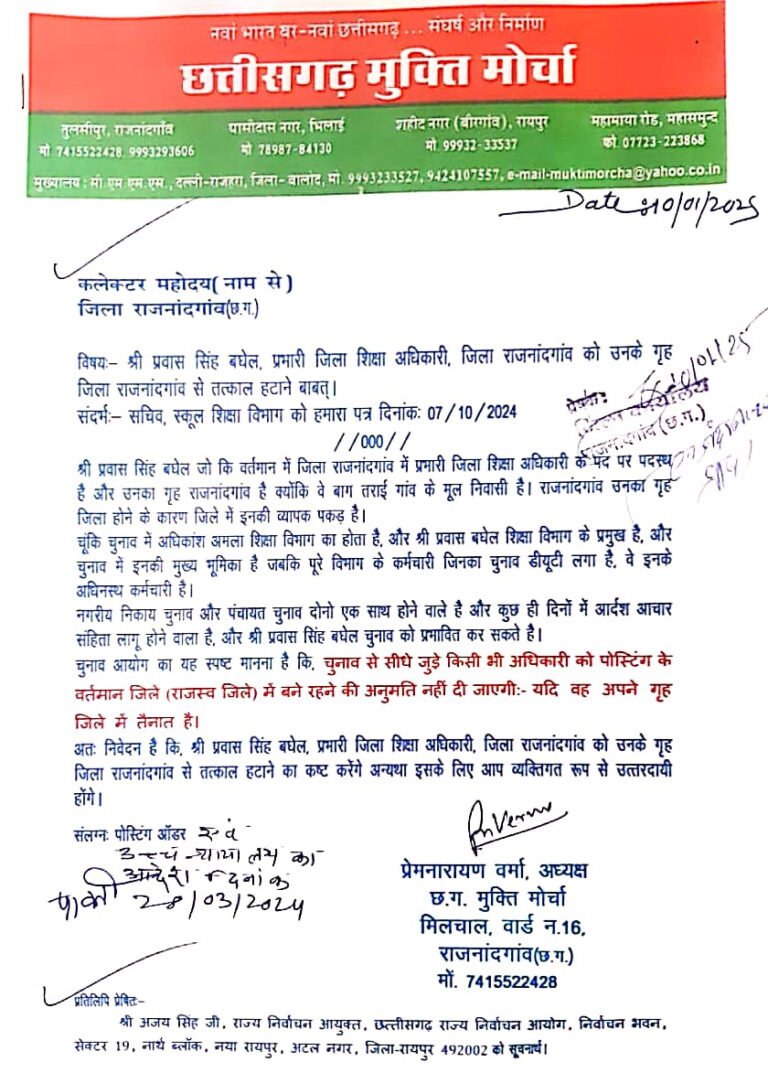 नवां भारत बर-नवां छत्तीसगढ़ ... संघर्ष और निर्माण
छत्तीसगढ़ मुक्ति मोर्चा
तुलसीपुर, राजनांदगाँव घासीदास नगर, भिलाई शहीद नगर (बीरगांव), रायपुर महामाया रोड, महासमुन्द
मो 7415522428, 9993293606 मो 78987-84130 मो. 99932-33537 फो. 07723-223868
मुख्यालय : सी.एम.एम.एम., दल्ली-राजहरा, जिला-बालोद, मो. 9993233527, 9424107557, e-mail-muktimorcha@yahoo.co.in
Date 10/01/2025
कलेक्टर महोदय( नाम से )
जिला राजनांदगांव(छ.ग.)
विषयः– श्री प्रवास सिंह बघेल, प्रभारी जिला शिक्षा अधिकारी, जिला राजनांदगांव को उनके गृह
जिला राजनांदगांव से तत्काल हटाने बाबत्।
संदर्भः– सचिव, स्कूल शिक्षा विभाग को हमारा पत्र दिनांकः 07/10/2024
//000//
राजनांदगांव (छ.ग.)
श्री प्रवास सिंह बघेल जो कि वर्तमान में जिला राजनांदगांव में प्रभारी जिला शिक्षा अधिकारी के पद पर पदस्थ
है और उनका गृह राजनांदगांव है क्योंकि वे बाग तराई गांव के मूल निवासी है। राजनांदगांव उनका गृह
जिला होने के कारण जिले में इनकी व्यापक पकड़ है।
चूंकि चुनाव में अधिकांश अमला शिक्षा विभाग का होता है, और श्री प्रवास बघेल शिक्षा विभाग के प्रमुख है, और
चुनाव में इनकी मुख्य भूमिका है जबकि पूरे विभाग के कर्मचारी जिनका चुनाव डीयूटी लगा है, वे इनके
अधिनस्थ कर्मचारी है।
नगरीय निकाय चुनाव और पंचायत चुनाव दोनो एक साथ होने वाले है और कुछ ही दिनों में आर्दश आचार
संहिता लागू होने वाला है, और श्री प्रवास सिंह बघेल चुनाव को प्रभावित कर सकते है।
चुनाव आयोग का यह स्पष्ट मानना है कि, चुनाव से सीधे जुड़े किसी भी अधिकारी को पोस्टिंग के
वर्तमान जिले (राजस्व जिले) में बने रहने की अनुमति नहीं दी जाएगी:- यदि वह अपने गृह
जिले में तैनात है।
अतः निवेदन है कि, श्री प्रवास सिंह बघेल, प्रभारी जिला शिक्षा अधिकारी, जिला राजनांदगांव को उनके गृह
जिला राजनांदगांव से तत्काल हटाने का कष्ट करेंगे अन्यथा इसके लिए आप व्यक्तिगत रूप से उत्तरदायी
होंगे।
संलग्नः पोस्टिंग ऑडर एवं
उच्च न्यायालय का
आदेश दिनांक
28/03/2024
PnVerma
प्रेमनारायण वर्मा, अध्यक्ष
छ.ग. मुक्ति मोर्चा
मिलचाल, वार्ड न.16,
राजनांदगांव(छ.ग.)
मों. 7415522428
प्रतिलिपि प्रेषितः–
श्री अजय सिंह जी, राज्य निर्वाचन आयुक्त, छत्तीसगढ़ राज्य निर्वाचन आयोग, निर्वाचन भवन,
सेक्टर 19, नार्थ ब्लॉक, नया रायपुर, अटल नगर, जिला-रायपुर 492002 को सूचनार्थ।